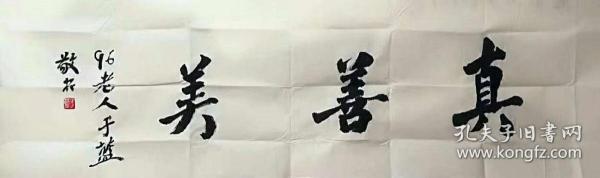 真善美
96老人于蓝
敬书
孔夫子旧书网
www.kongfz.com